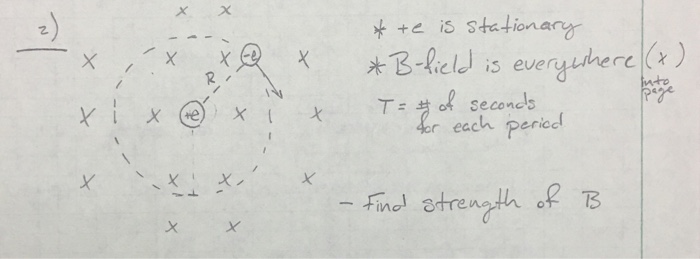 2)
x x
x x x -e x
R
x x +e x x
x x x x
x x
* +e is stationary
* B-field is everywhere (x)
into
page
T = # of seconds
for each period
- Find strength of B